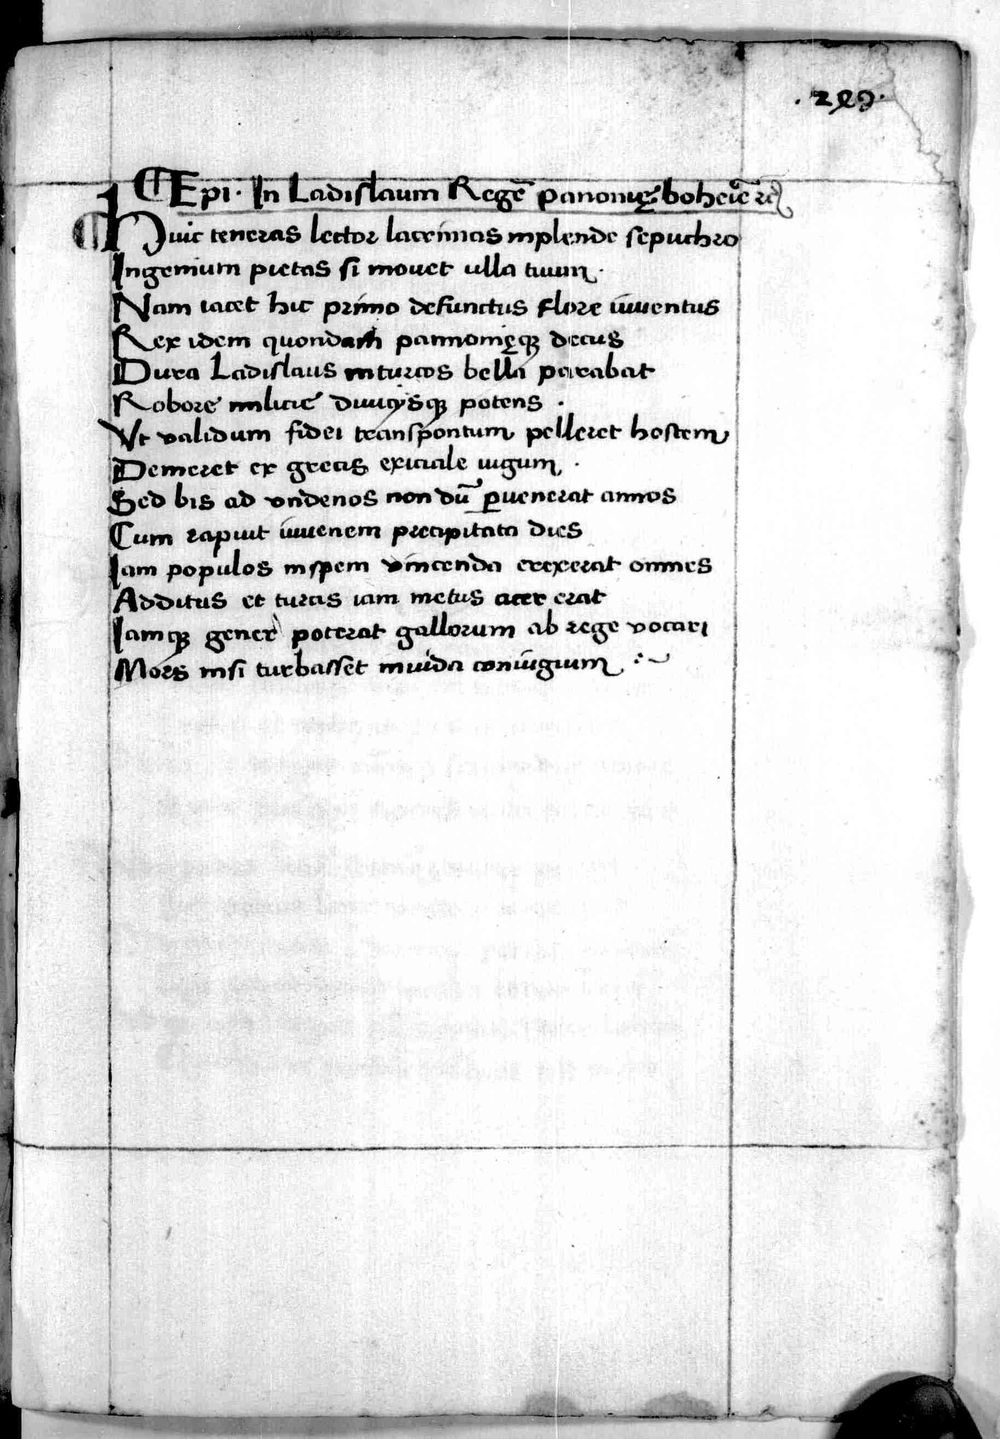 .289.
Epi. In Ladislaum Regē panonię boheīe
Huic teneras lector lacrimas implende sepuchro
Ingenium pietas si movet ulla tuum.
Nam iacet hic primo defunctus flore iuventus
Rex idem quondam pannonięq decus
Dura Ladislaus inturcos bella parabat
Robore milicie divicysq potens .
Vt validum fidei transpontum pelleret hostem
Demeret ex grecis exiciale iugum .
Sed bis ad undenos non dū pvenerat annos
Cum rapuit iuvenem precipitata dies
Iam populos inspem vincenda erexerat omnes
Additus et turcis iam metus acer erat
Iamq gener poterat gallorum ab rege vocari
Mors nisi turbasset invida coniugium